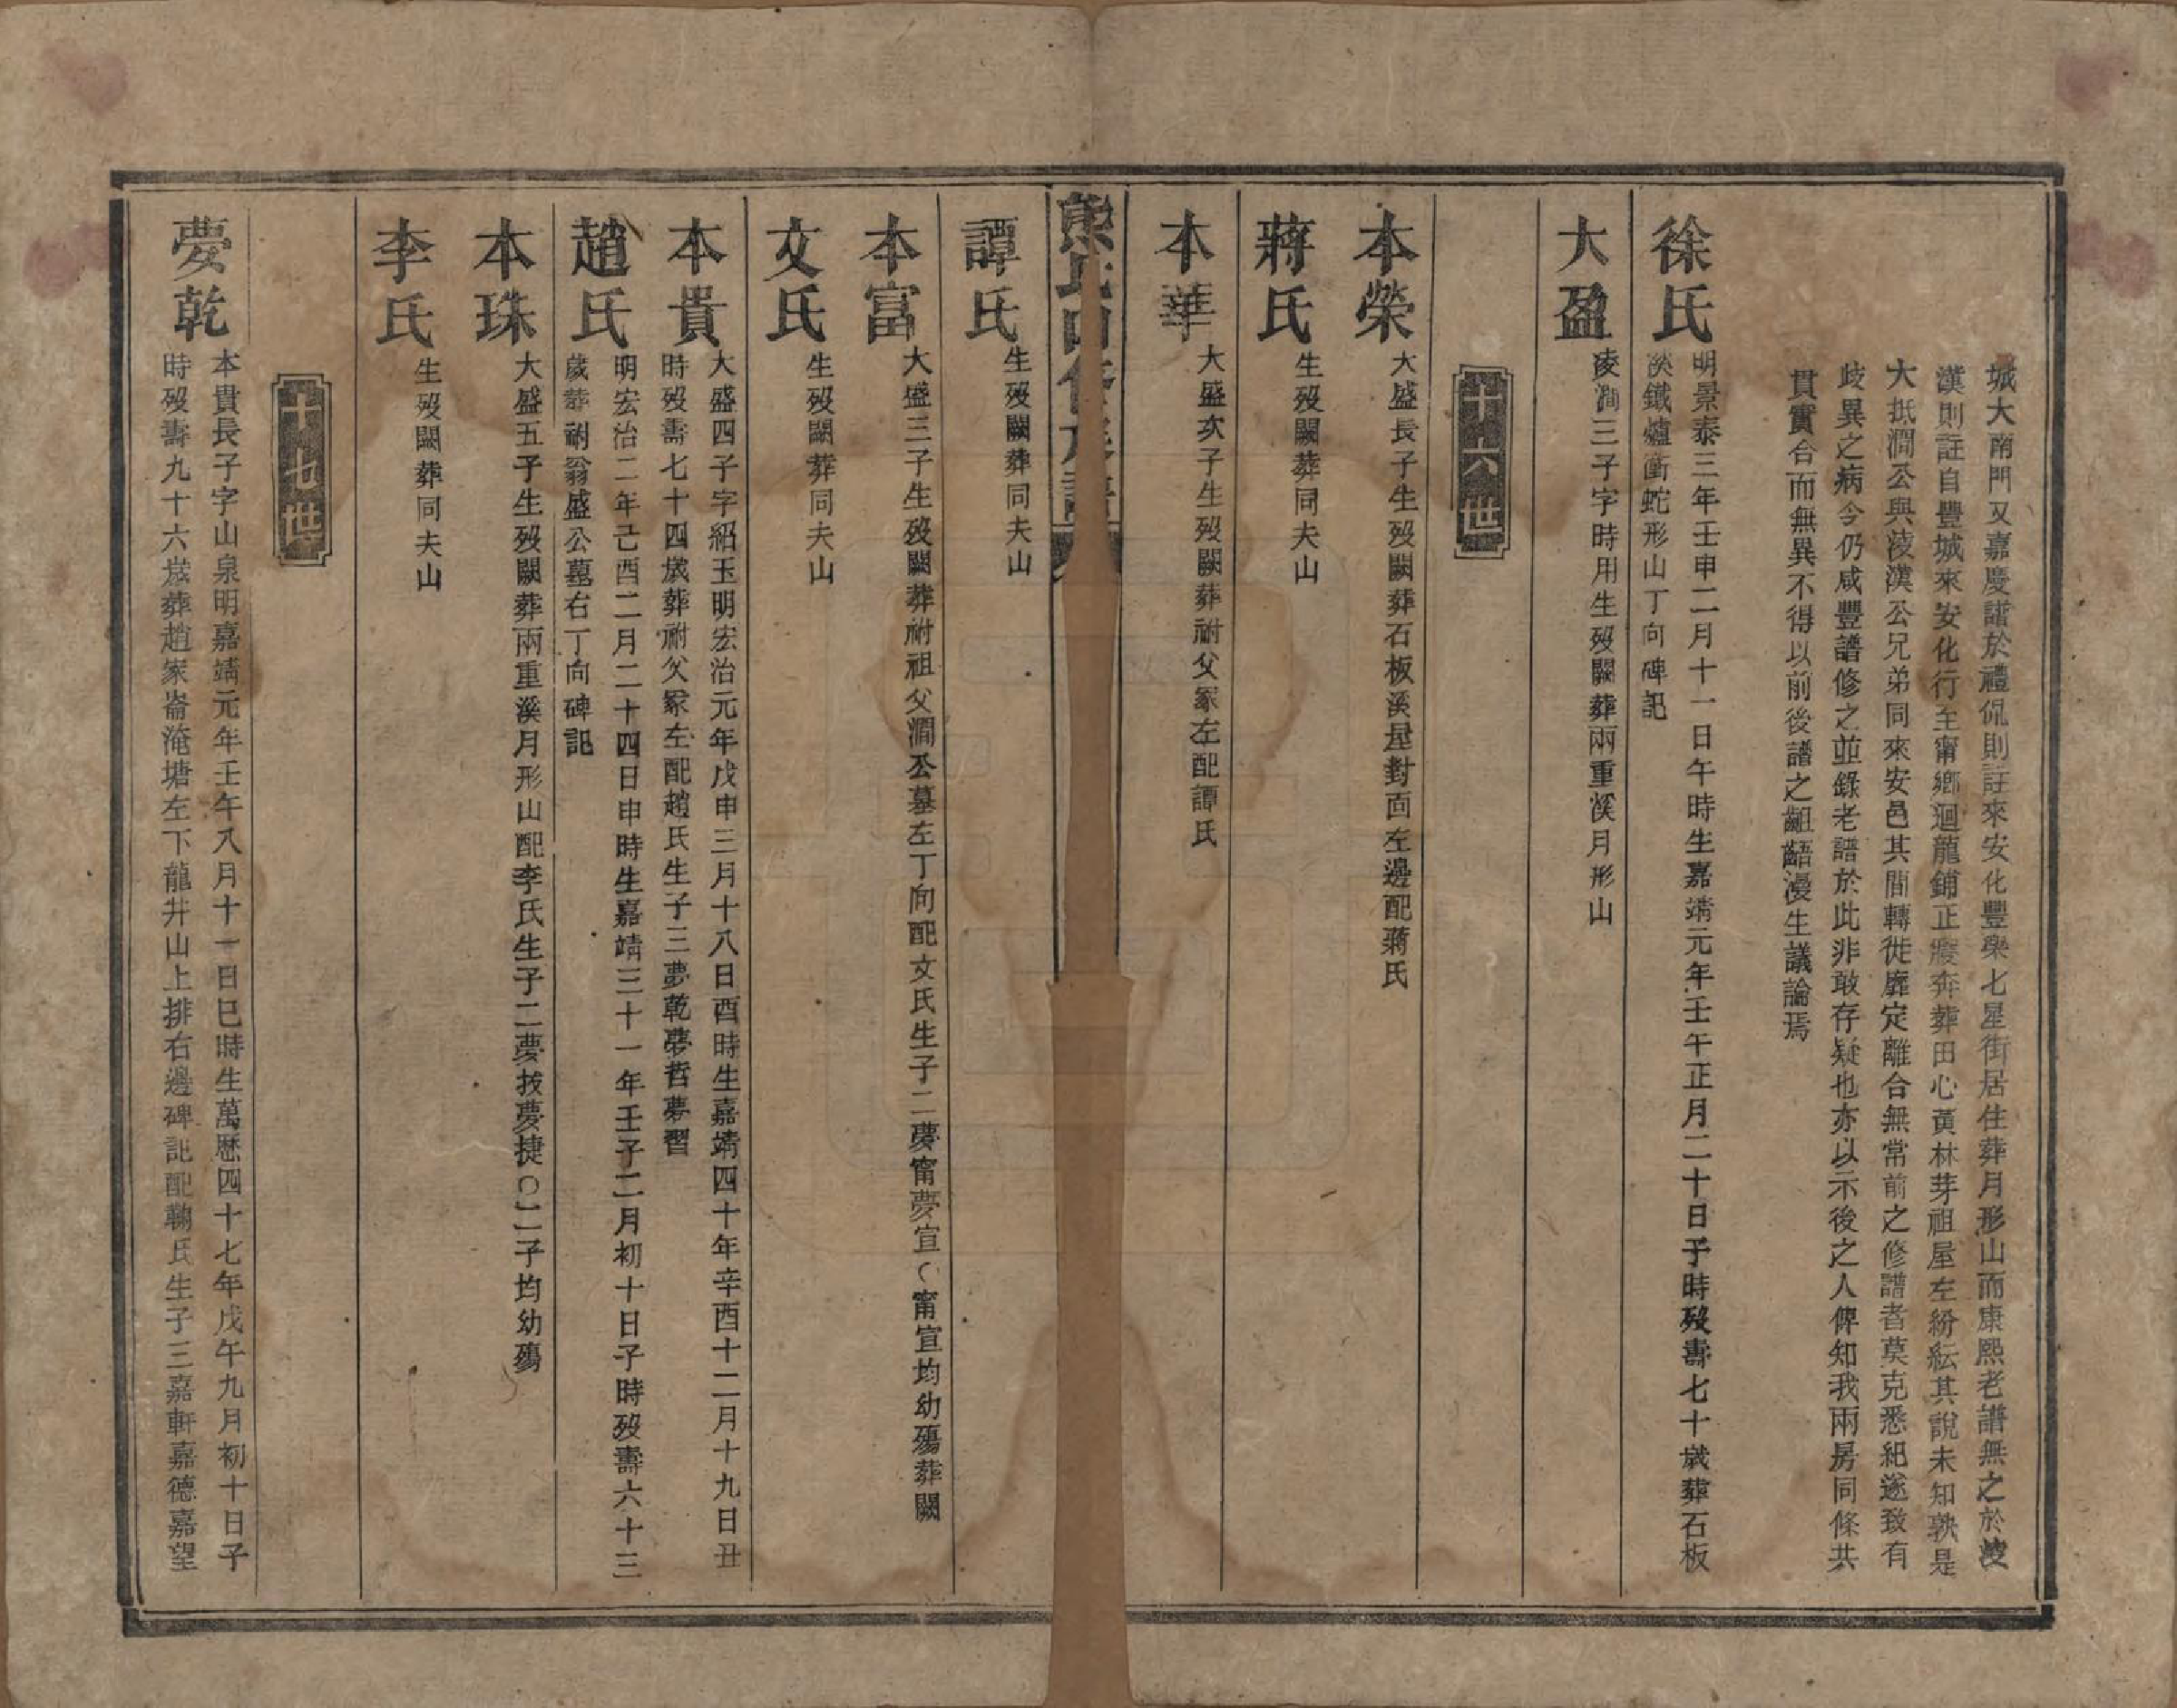 城大南門又嘉慶譜於禮侃則註來安化豐樂七星街居住葬月形山而康熙老譜無之於淩
漢則註自豐城來安化行至甯鄉迴龍鋪正癈奔葬田心黃林芽祖屋左紛紜其說未知孰是
大抵澗公與淩漢公兄弟同來安邑其間轉徙靡定離合無常前之修譜者莫克悉紀遂致有
歧異之病今仍咸豐譜修之並錄老譜於此非敢存疑也亦以示後之人俾知我兩房同條共
貫實合而無異不得以前後譜之齟齬漫生議論焉
徐氏
明景泰三年壬申二月十一日午時生嘉靖元年壬午正月二十日子時歿壽七十歲葬石板
溪鐵爐衝蛇形山丁向碑記
大盈
淩澗三子字時用生歿闕葬兩重溪月形山
十六世
本榮
大盛長子生歿闕葬石板溪屋對面左邊配蔣氏
蔣氏
生歿闕葬同夫山
本華
大盛次子生歿闕葬祔父冢左配譚氏
熊氏四修族譜
譚氏
生歿闕葬同夫山
本富
大盛三子生歿闕葬祔祖父澗公墓左丁向配文氏生子二夢甯夢宣○甯宣均幼殤葬闕
文氏
生歿闕葬同夫山
本貴
大盛四子字紹玉明宏治元年戊申三月十八日酉時生嘉靖四十年辛酉十二月十九日丑
時歿壽七十四歲葬祔父冢左配趙氏生子三夢乾夢哲夢習
趙氏
明宏治二年己酉二月二十四日申時生嘉靖三十一年壬子二月初十日子時歿壽六十三
歲葬祔翁盛公墓右丁向碑記
本珠
大盛五子生歿闕葬兩重溪月形山配李氏生子二夢拔夢捷○二子均幼殤
李氏
生歿闕葬同夫山
十七世
夢乾
本貴長子字山泉明嘉靖元年壬午八月十一日巳時生萬歷四十七年戊午九月初十日子
時歿壽九十六歲葬趙家崙淹塘左下龍井山上排右邊碑記配鞠氏生子三嘉軒嘉德嘉望